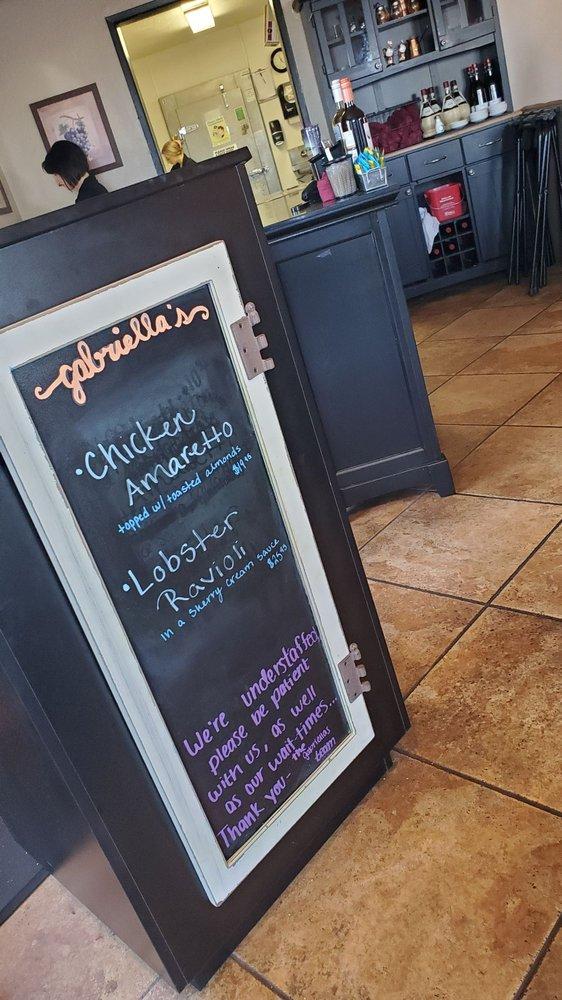 gabriella's
• Chicken
Amaretto
topped w/ toasted almonds
$19.95
• Lobster
Ravioli
in a sherry cream sauce
$25.95
We're understaffed,
please be patient
with us, as well
as our wait-times...
Thank you - the
team